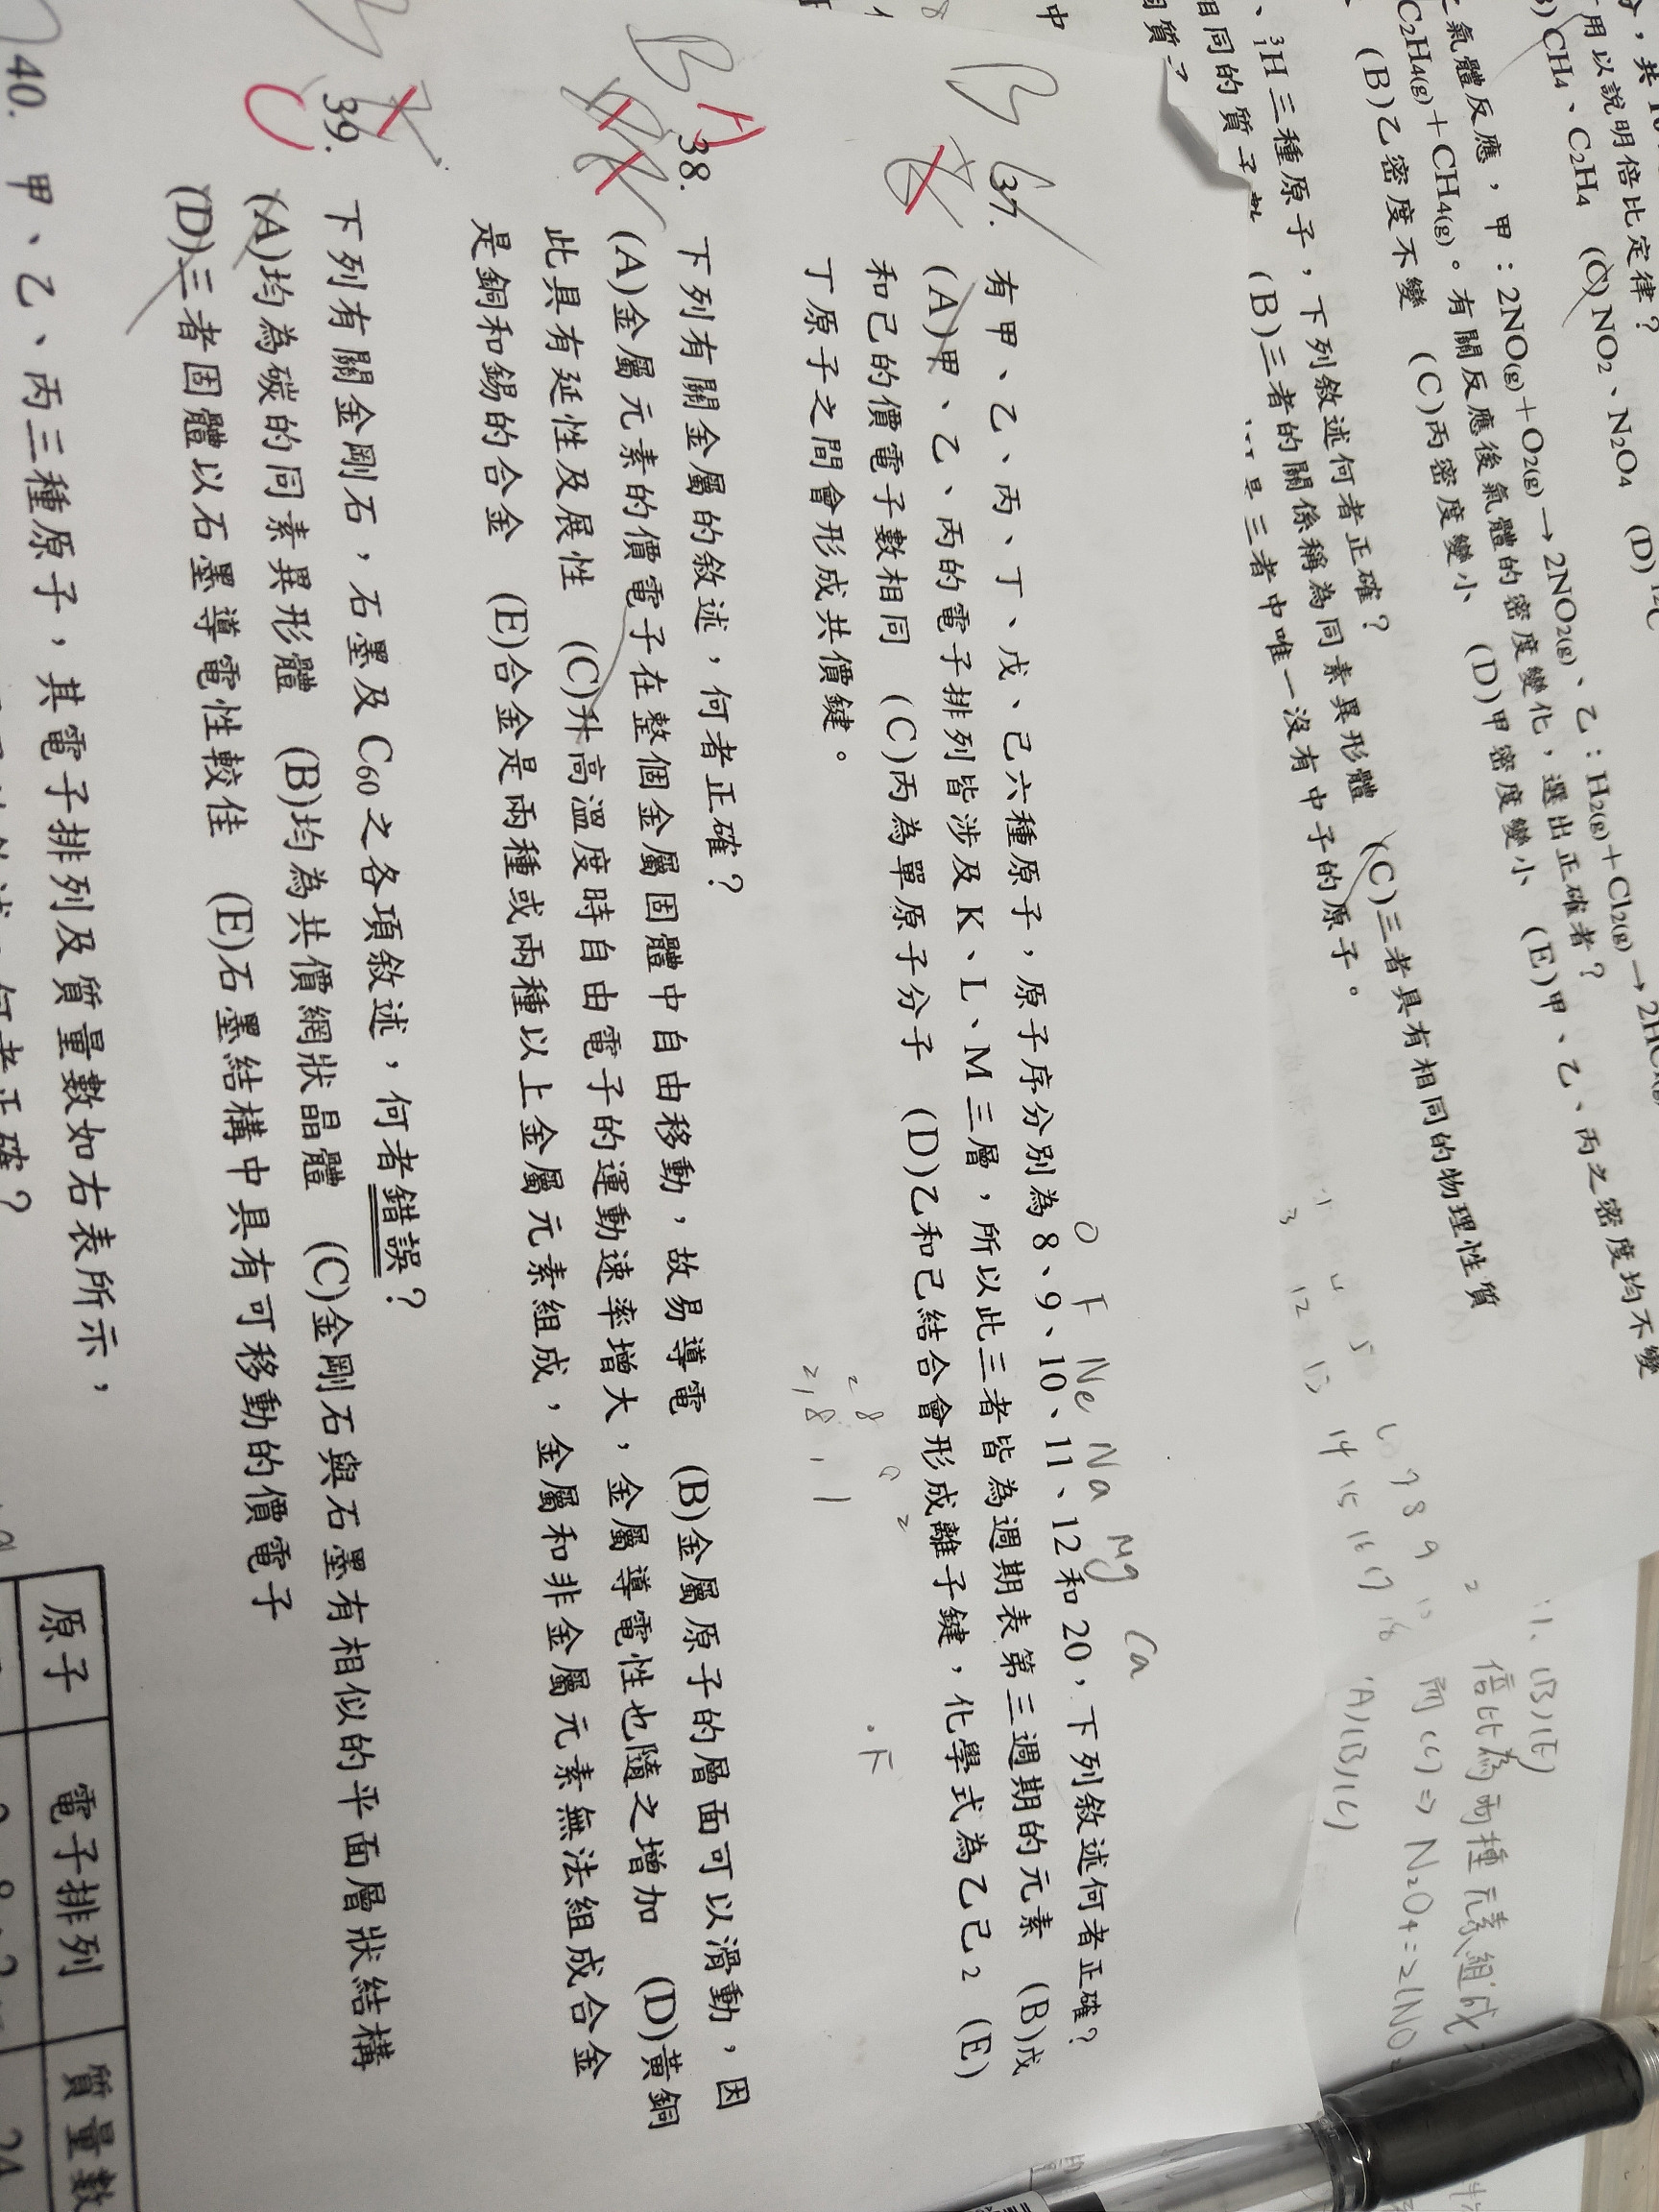 用以說明倍比定律？
CH4、C2H4 (C)NO2、N2O4 (D)
氣體反應，甲：2NO(g)＋O2(g)→2NO2(g)、乙：H2(g)＋Cl2(g)→2HCl(g)
C2H4(g)＋CH4(g)。有關反應後氣體的密度變化，選出正確者？
(B)乙密度不變 (C)丙密度變小 (D)甲密度變小 (E)甲、乙、丙之密度均不變
、³H三種原子，下列敘述何者正確？
相同的質子 (B)三者的關係稱為同素異形體 (C)三者具有相同的物理性質
三者中唯一沒有中子的原子。
1、(B)(E)
倍比為兩種元素組成
而(C)⇒N2O4=2(NO2
(A)(B)(C)
6 7 8 9
14 15 16 17 18
O F Ne Na Mg Ca
B
37. 有甲、乙、丙、丁、戊、己六種原子，原子序分別為8、9、10、11、12和20，下列敘述何者正確？
(A)甲、乙、丙的電子排列皆涉及K、L、M三層，所以此三者皆為週期表第三週期的元素 (B)戊
和己的價電子數相同 (C)丙為單原子分子 (D)乙和己結合會形成離子鍵，化學式為乙己2 (E)
丁原子之間會形成共價鍵。
2 8 2
2, 8, 1
B A
38. 下列有關金屬的敘述，何者正確？
(A)金屬元素的價電子在整個金屬固體中自由移動，故易導電 (B)金屬原子的層面可以滑動，因
此具有延性及展性 (C)升高溫度時自由電子的運動速率增大，金屬導電性也隨之增加 (D)黃銅
是銅和錫的合金 (E)合金是兩種或兩種以上金屬元素組成，金屬和非金屬元素無法組成合金
C
39. 下列有關金剛石，石墨及C60之各項敘述，何者錯誤？
(A)均為碳的同素異形體 (B)均為共價網狀晶體 (C)金剛石與石墨有相似的平面層狀結構
(D)三者固體以石墨導電性較佳 (E)石墨結構中具有可移動的價電子
40. 甲、乙、丙三種原子，其電子排列及質量數如右表所示，
何者正確？
原子 電子排列 質量數
24